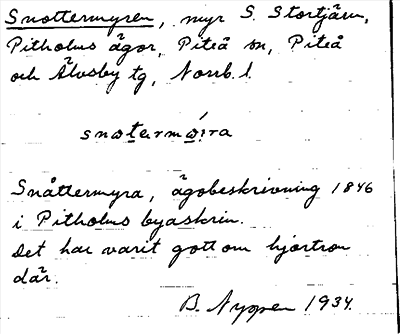 Snottermyren, myr S. Stortjärn,
Pitholms ägor, Piteå sn, Piteå
och Älvsby tg, Norrb. l.
snotermo̱i̯ra
Snåttermyra, ägobeskrivning 1846
i Pitholms byaskrin.
Det har varit gott om hjortron
där.
B. Nyppen 1934.